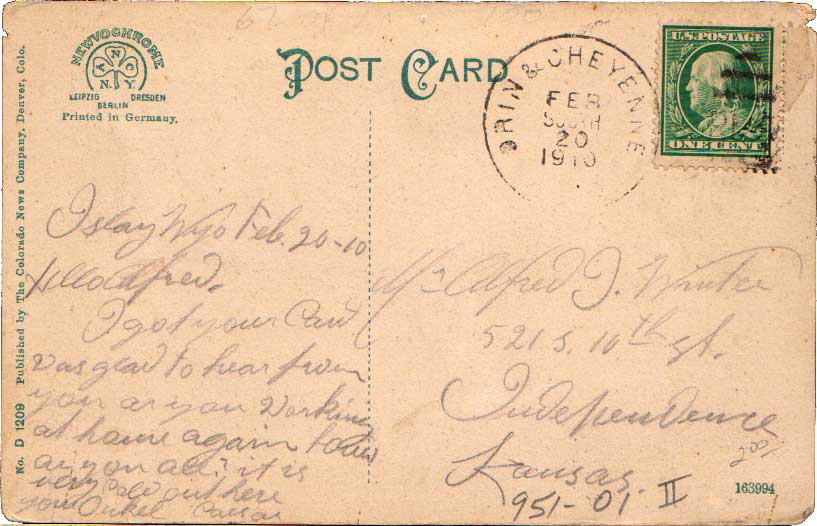 No. D 1209 Published by The Colorado News Company, Denver, Colo.
NEWVOCHROME
A N C
N.Y.
LEIPZIG DRESDEN
BERLIN
Printed in Germany.
POST CARD
ORIN & CHEYENNE
FEB
SOUTH
20
1910
U.S. POSTAGE
ONE CENT
Islay Wyo Feb. 20-10
Hello Alfred.
I got your Card
was glad to hear from
you ar you Working
at home again
ar you all? it is
very Cold out here
your Onkel
Mr Alfred J. Winter
521 S. 10th st.
Independence
Kansas.
951-01 II
200
163994